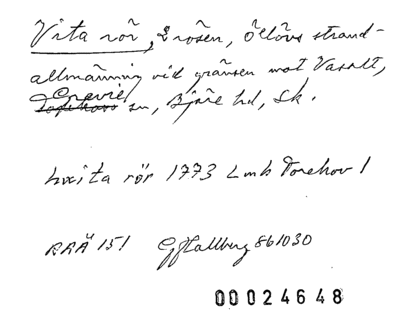 Vita rör, 2 rösen, Öllövs strand-
allmänning vid gränsen mot Vasalt,
Grevie
sn, Bjäre hd, Sk.
hvita rör 1773 Lmh Torekov 1
RAÄ 151 G Hallberg 861030
00024648